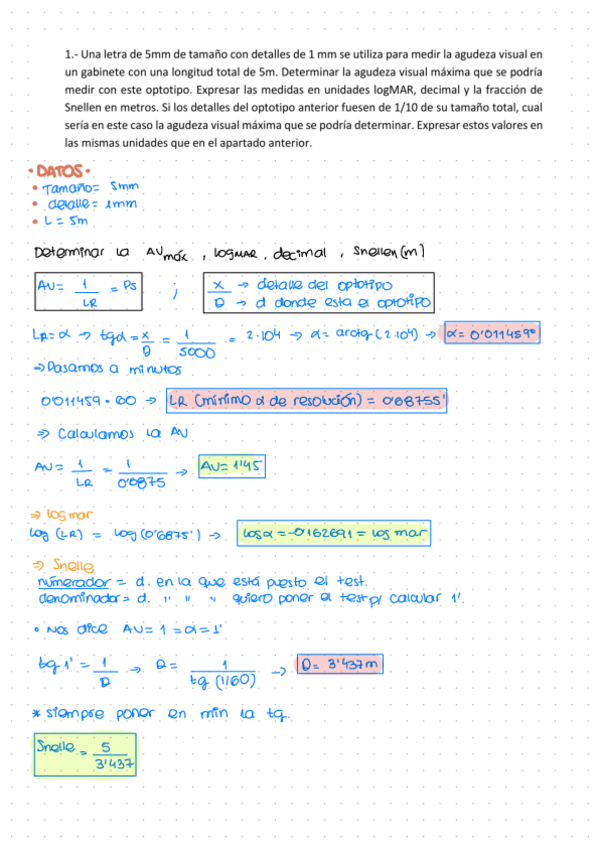 1.- Una letra de 5mm de tamaño con detalles de 1 mm se utiliza para medir la agudeza visual en
un gabinete con una longitud total de 5m. Determinar la agudeza visual máxima que se podría
medir con este optotipo. Expresar las medidas en unidades logMAR, decimal y la fracción de
Snellen en metros. Si los detalles del optotipo anterior fuesen de 1/10 de su tamaño total, cual
sería en este caso la agudeza visual máxima que se podría determinar. Expresar estos valores en
las mismas unidades que en el apartado anterior.
• DATOS •
• Tamaño= 5mm
• detalle= 1mm
• L = 5m
Determinar la AVmáx , logMAR, decimal , Snellen (m)
AV= 1/LR = Ps ; X → detalle del optotipo
D → d donde esta el optotipo
LR= α → tgα = x/D = 1/5000 = 2·104 → α= arctg (2·104) → α= 0'011459º
⇒ Pasamos a minutos
0'011459 · 60 → LR (mínimo α de resolución) = 0'68755'
⇒ Calculamos la AV
AV= 1/LR = 1/0'6875 → AV= 1'45
⇒ logmar
log (LR) = log (0'6875') → logα = -0'162691 = log mar
⇒ Snelle
numerador = d. en la que está puesto el test.
denominador= d. " " " quiero poner el test p/ calcular 1'.
• Nos dice AV= 1 = α = 1'
tg 1' = 1/D → D= 1/tg (1/60) → D= 3'437m
* siempre poner en min la tg.
Snelle = 5/3'437